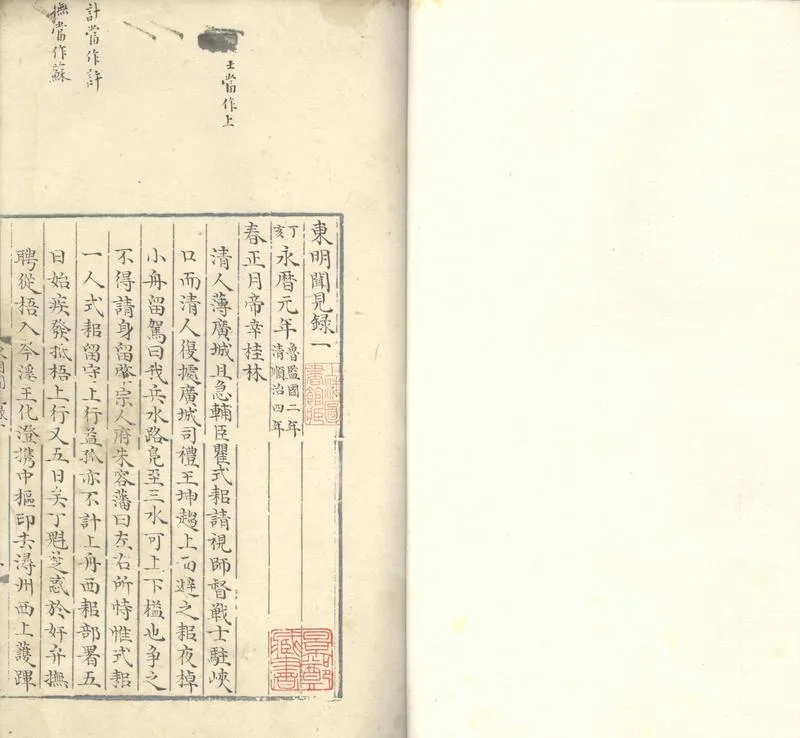 士當作上
計當作許
撫當作蘇
東明聞見録一
丁亥永曆元年魯監國二年清順治四年
春正月帝幸桂林
清人薄廣城且急輔臣瞿式耜請視師督戰士駐峽
口而清人復擄廣城司禮王坤趨上西避之耜夜棹
小舟留駕曰我兵水路凫至三水可上下檻也争之
不得請身留肇宗人府朱容藩曰左右所恃惟式耜
一人式耜留守上行益孤亦不計上舟西耜部署五
日始疾發抵梧上行又五日矣丁魁楚惑於奸弁撫
聘從梧入岑溪王化澄攜中樞印去潯州西上護蹕
上海圖書館藏
景鄭藏書